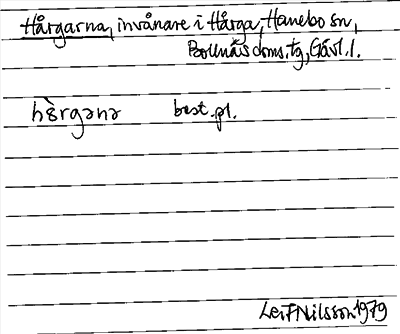 Hårgarna, invånare i Hårga, Hanebo sn,
Bollnäs doms. tg, Gävl. l.
hə̀rgənə best. pl.
Leif Nilsson 1979